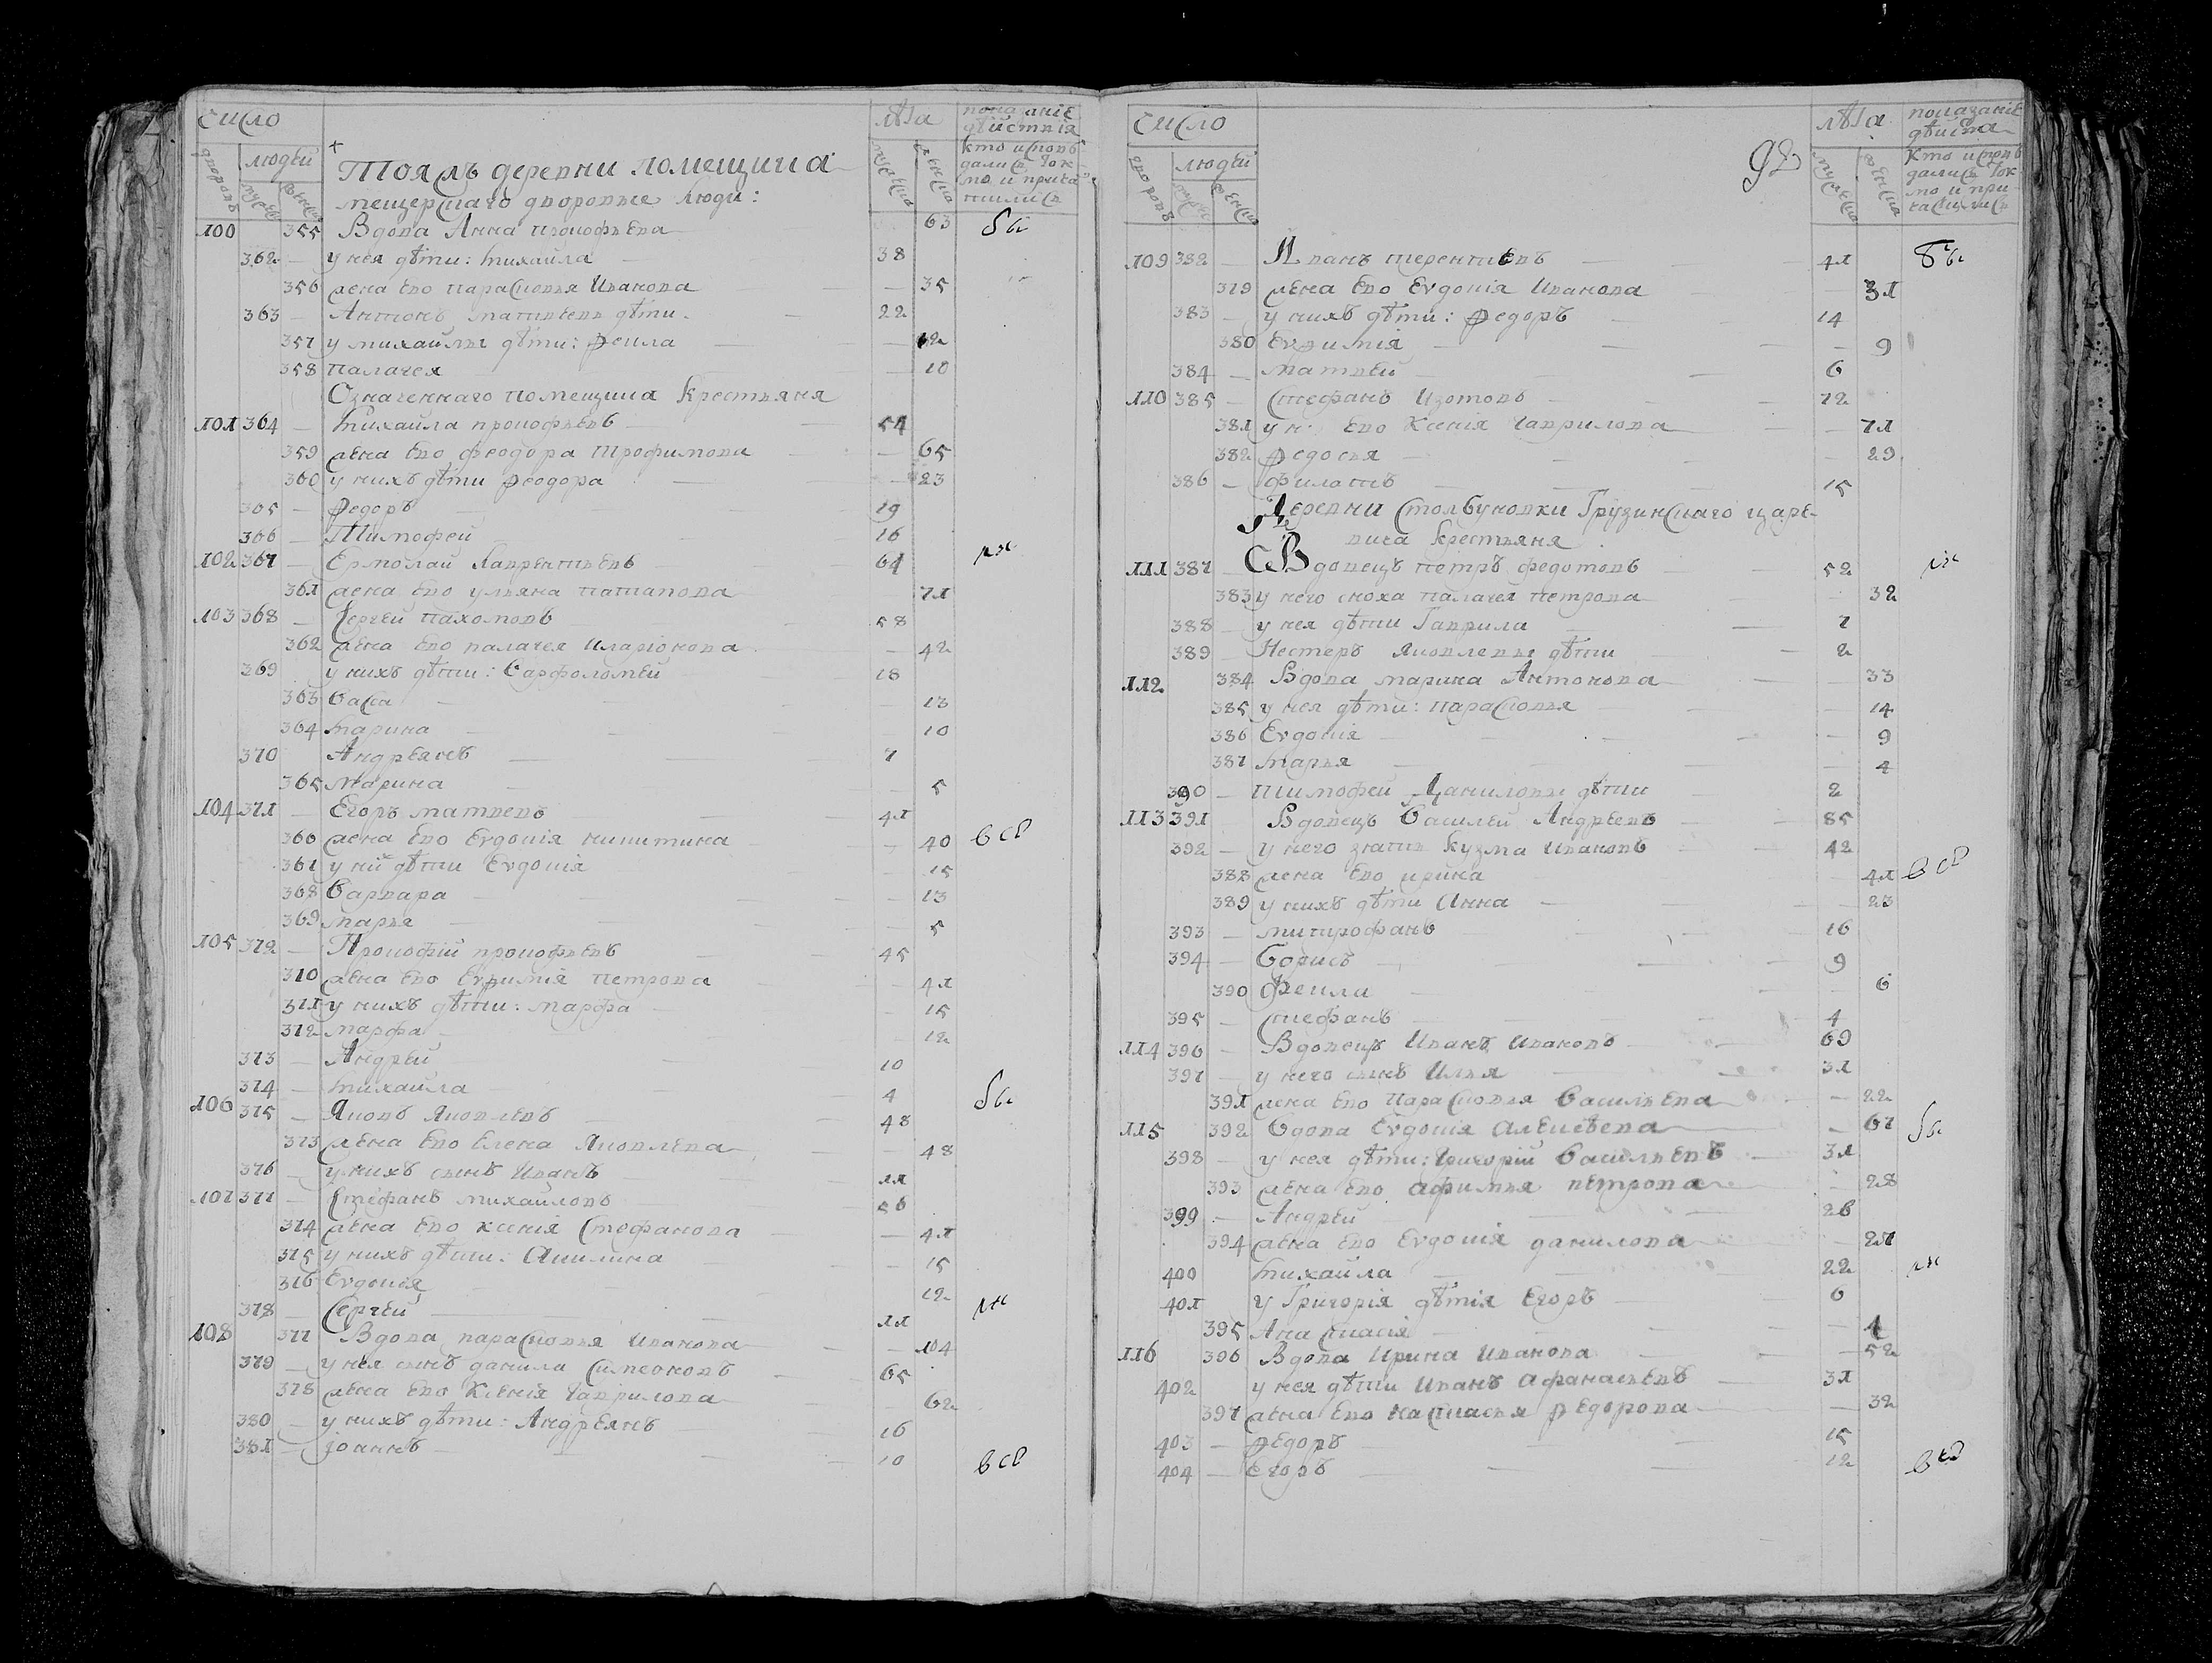 число
лѣта
показаніе
дѣйствія
дворовъ
людей
мужеска
женска
кто исповѣ
дались ток
мо и прича
тились
Тоя жъ деревни помещика
мещерскаго дворовые люди:
100 355 Вдова Анна прокофьева 63 бы
362 у нея дѣти: михайла 38
356 жена ево парасковья Иванова 35
363 Антонъ матвѣевы дѣти 22
357 у михайлы дѣти: фекла 12
358 палагея 10
Означеннаго помещика крестьяня
101 364 михайла прокофьевъ 54
359 жена ево феодора трофимова 65
360 у нихъ дѣти феодора 23
365 федоръ 19
366 Тимофей 16
102 367 Ермолай лаврентьевъ 64
361 жена ево ульяна патапова 71
103 368 Сергей пахомовъ 58
362 жена ево палагея иларионова 42
369 у нихъ дѣти: варфоломей 18
363 васса 13
364 марина 10
370 Андреянъ 7
365 марина 5
104 371 Егоръ матвеевъ 41
366 жена ево Евдокія никитина 40 всѣ
367 у ни дѣти Евдокія 15
368 варвара 13
369 марья 5
105 372 Прокофій прокофьевъ 45
370 жена ево Евфимія петрова 41
371 у нихъ дѣти: марфа 15
372 марфа 12
373 Андрей 10
374 михайла 4 бы
106 375 Яковъ Яковлевъ 48
373 жена ево Елена Яковлева 48
376 у нихъ сынъ Иванъ 11
107 377 Стефанъ михайловъ 56
374 жена ево ксенія Стефанова 41
375 у нихъ дѣти: Акилина 15
376 Евдокія 12
378 Сергей 11
108 377 Вдова парасковья Иванова 104
379 у нея сынъ данила Симеоновъ 65
378 жена ево Ксенія гаврилова 62
380 у нихъ дѣти: Андреянъ 16
381 іоаннъ 10 всѣ
число
92
лѣта
показаніе
дѣйства
дворовъ
людей
мужеска
женска
кто исповѣ
дались ток
мо и при
частились
109 382 Иванъ терентьевъ 41 бы
379 жена ево Евдокія Иванова 31
383 у нихъ дѣти: федоръ 14
380 Евфимія 9
384 матвей 6
110 385 Стефанъ Изотовъ 72
381 у н: ево Ксенія гаврилова 71
382 федосья 29
386 филатъ 15
Деревни Столбуновки Грузинскаго царе-
вича крестьяня
111 387 Вдовецъ петръ федотовъ 52
383 у него сноха палагея петрова 32
388 у нея дѣти Гаврила 7
389 Нестеръ Яковлевы дѣти 2
112 384 Вдова марина Антонова 33
385 у нея дѣти: парасковья 14
386 Евдокія 9
387 марья 4
390 тимофей Даниловы дѣти 2
113 391 Вдовецъ василей Андреевъ 85
392 у него зять кузма Ивановъ 42
388 жена ево ирина 41 всѣ
389 у нихъ дѣти Анна 23
393 митрофанъ 16
394 борисъ 9
390 Фекла 6
395 Стефанъ 4
114 396 Вдовецъ Иванъ Ивановъ 69
397 у него сынъ Илья 31
391 жена ево парасковья васильева 22
115 392 вдова Евдокія Алексѣева 67 бы
398 у нея дѣти: григорій васильевъ 31
393 жена ево афимья петрова 28
399 Андрей 26
394 жена ево Евдокія данилова 21
400 михайла 22
401 у Григорія дѣтія Егоръ 6
395 Анастасія 4
116 396 Вдова Ирина Иванова 52
402 у нея дѣти Иванъ афанасьевъ 31
397 жена ево настасья федорова 32
403 федоръ 15
404 егоръ 12 всѣ